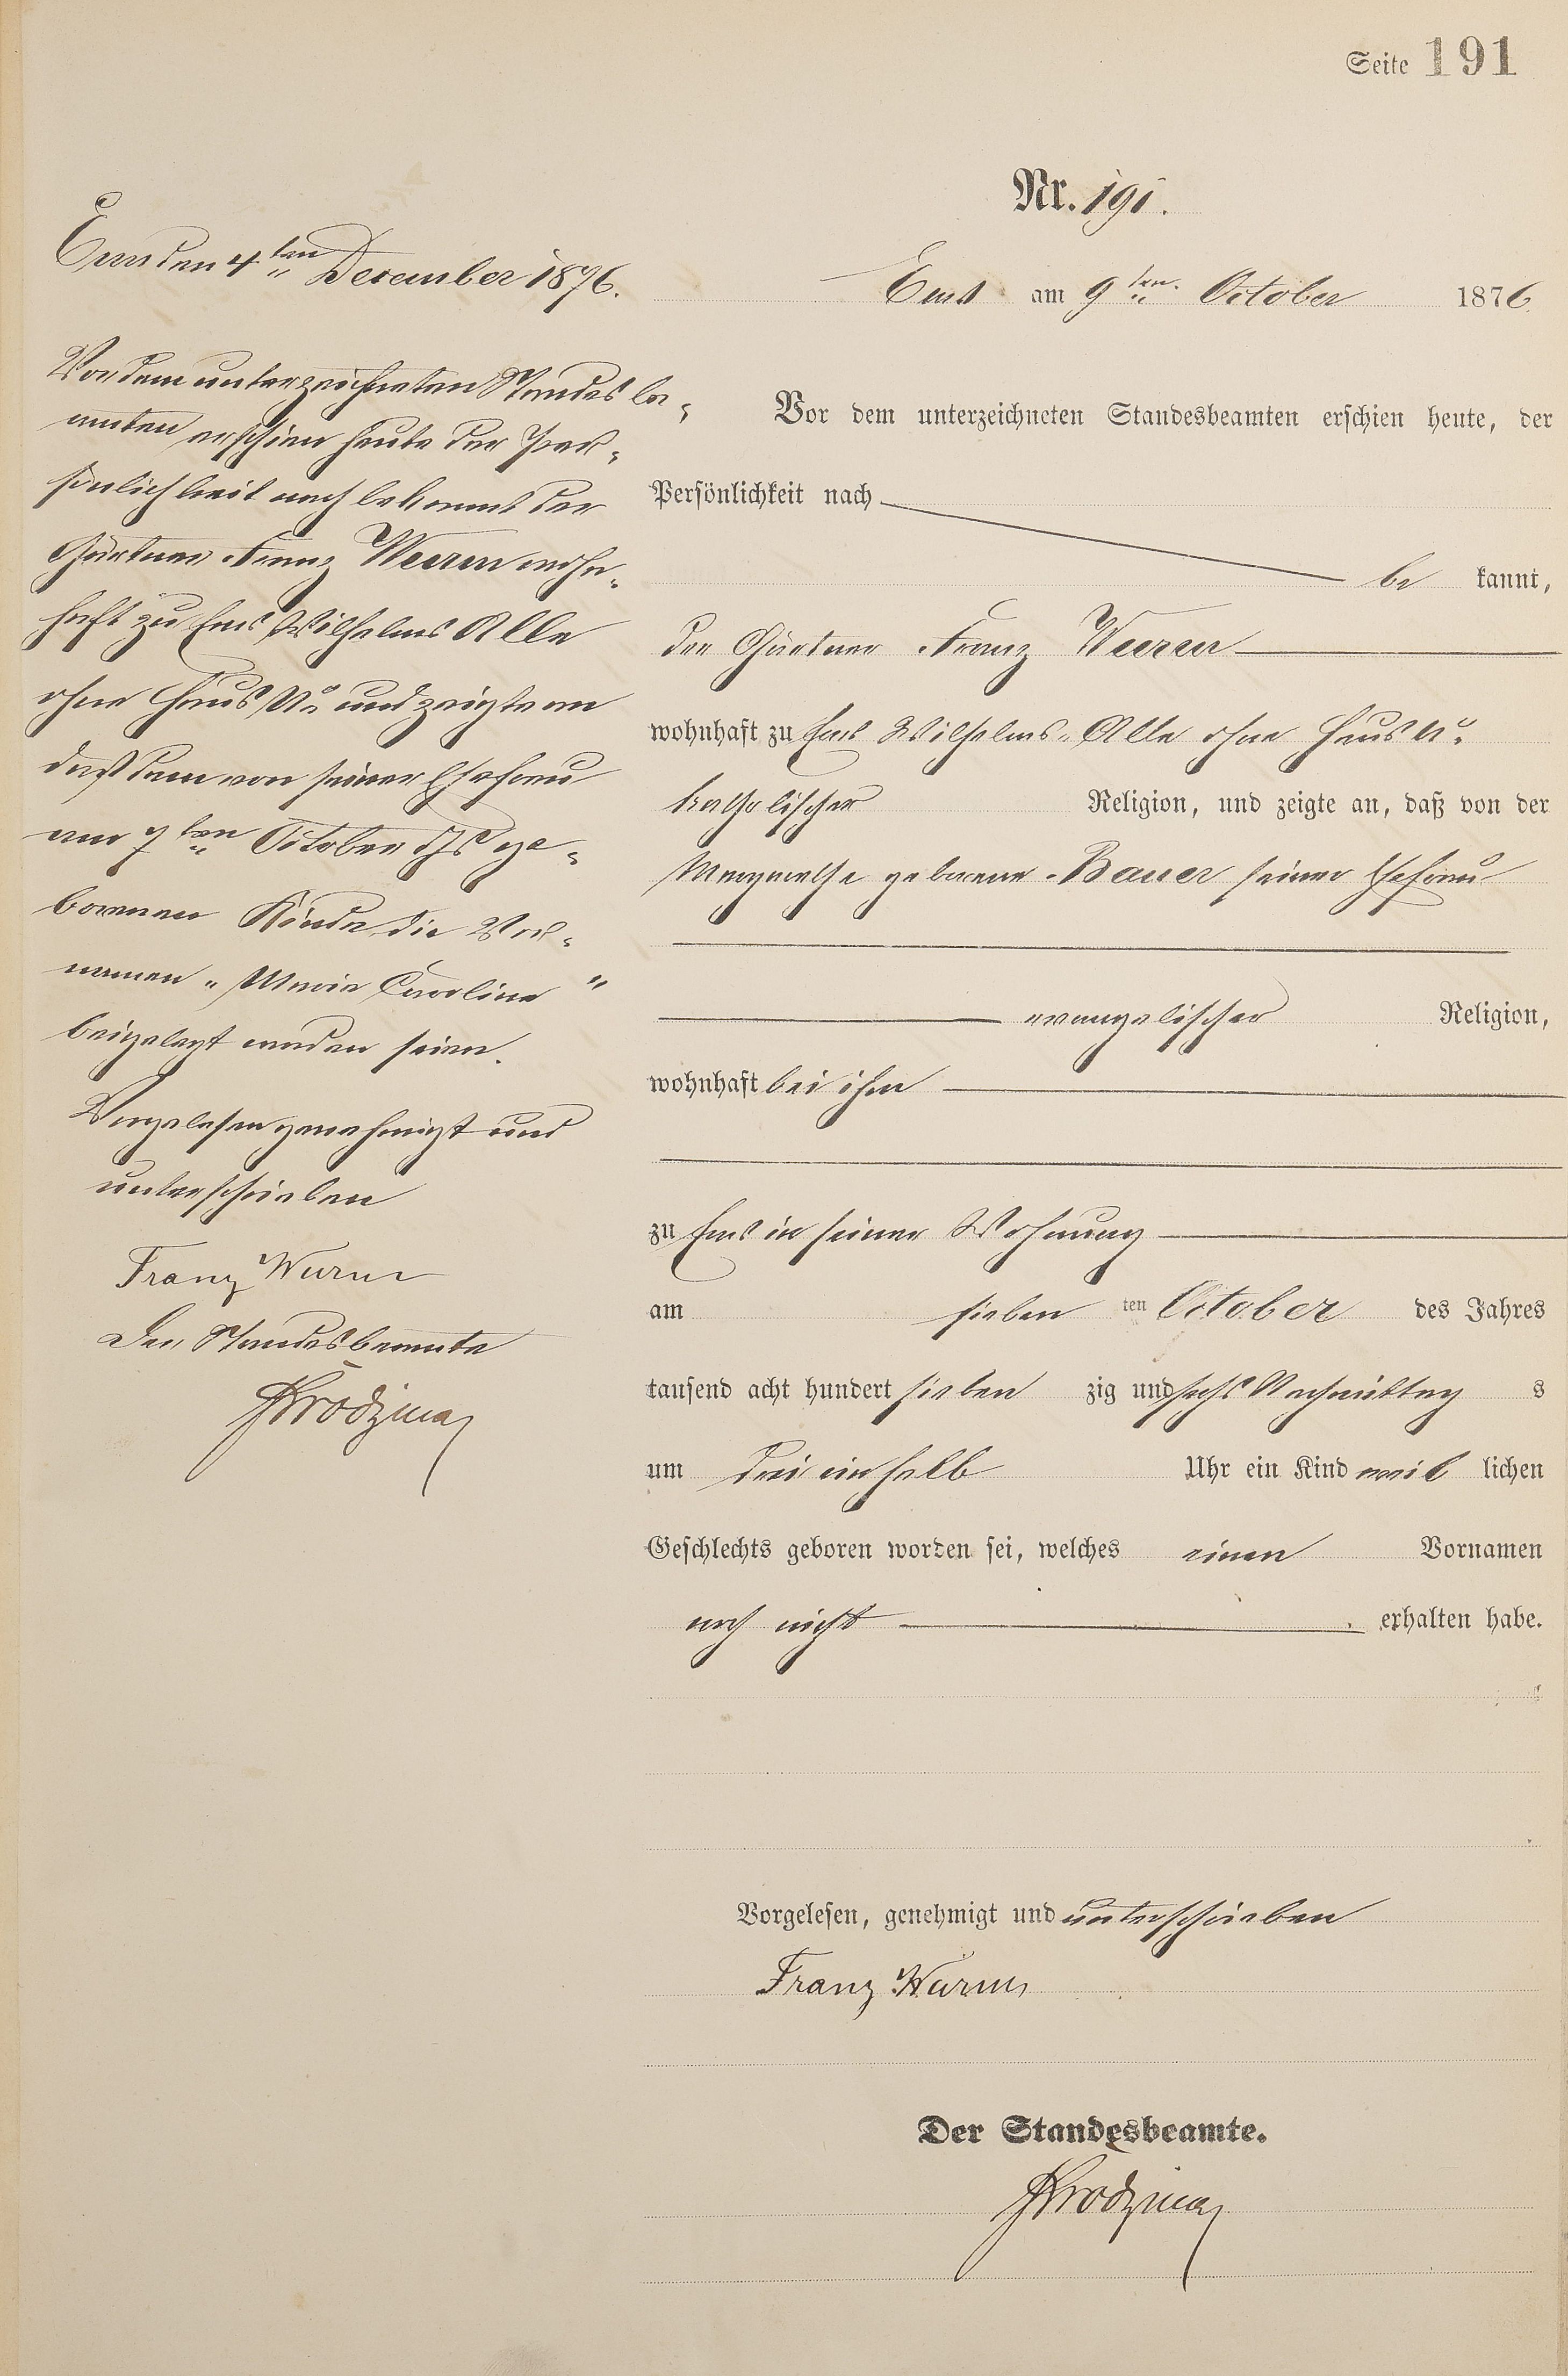 Seite 191
Nr. 191.
Ems am 9ten October 1876.
Vor dem unterzeichneten Standesbeamten erschien heute, der
Persönlichkeit nach
be kannt,
der Gärtner Franz Wurm
wohnhaft zu Ems Wilhelms-Alle ohne Haus No
katholischer Religion, und zeigte an, daß von der
Margarethe geborene Bauer seiner Ehefrau
evangelischer Religion,
wohnhaft bei ihm
zu Ems in seiner Wohnung
am sieben ten October des Jahres
tausend acht hundert sieben zig und sechs Nachmittag s
um drei ein halb Uhr ein Kind weib lichen
Geschlechts geboren worden sei, welches einen Vornamen
noch nicht erhalten habe.
Vorgelesen, genehmigt und unterschrieben
Franz Wurm
Der Standesbeamte.
Ems den 4ten December 1876.
Vor dem unterzeichneten Standesbe-
amten erschien heute der Per-
sönlichkeit nach bekannt der
Gärtner Franz Wurm wohn-
haft zu Ems Wilhelms Alle
ohne Haus No und zeigte an
daß dem von seiner Ehefrau
am 7ten October ds Js ge-
borenen Kinde die Vor-
namen "Maria Caroline"
beigelegt worden seien.
Vorgelesen genehmigt und
unterschrieben
Franz Wurm
Der Standesbeamte